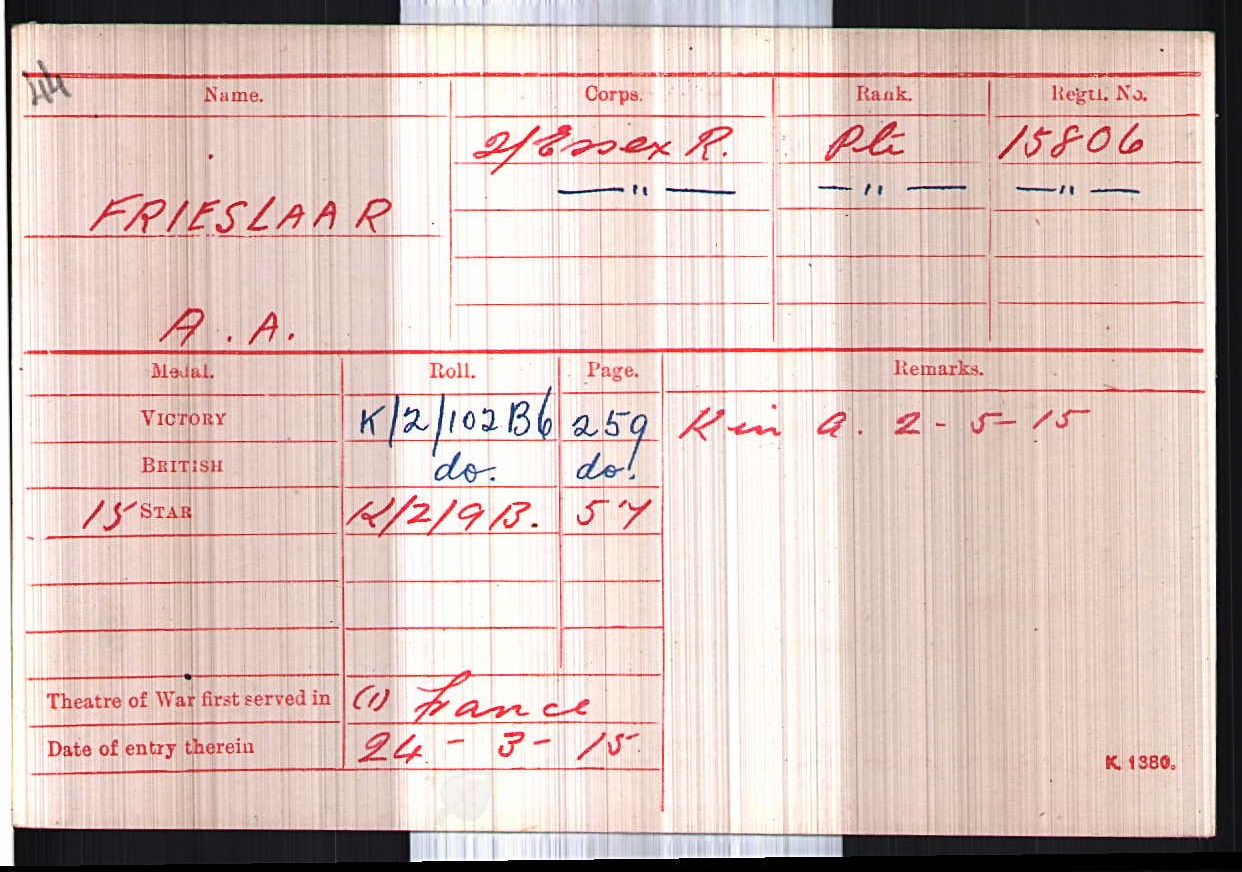 44
Name. Corps. Rank. Regtl. No.
2/Essex R. Pte 15806
—"— —"— —"—
FRIESLAAR
A. A.
Medal. Roll. Page. Remarks.
VICTORY K/2/102B6 259 K in A. 2-5-15
BRITISH do. do.
15 STAR K/2/9B. 57
Theatre of War first served in (1) France
Date of entry therein 24-3-15.
K. 1380.